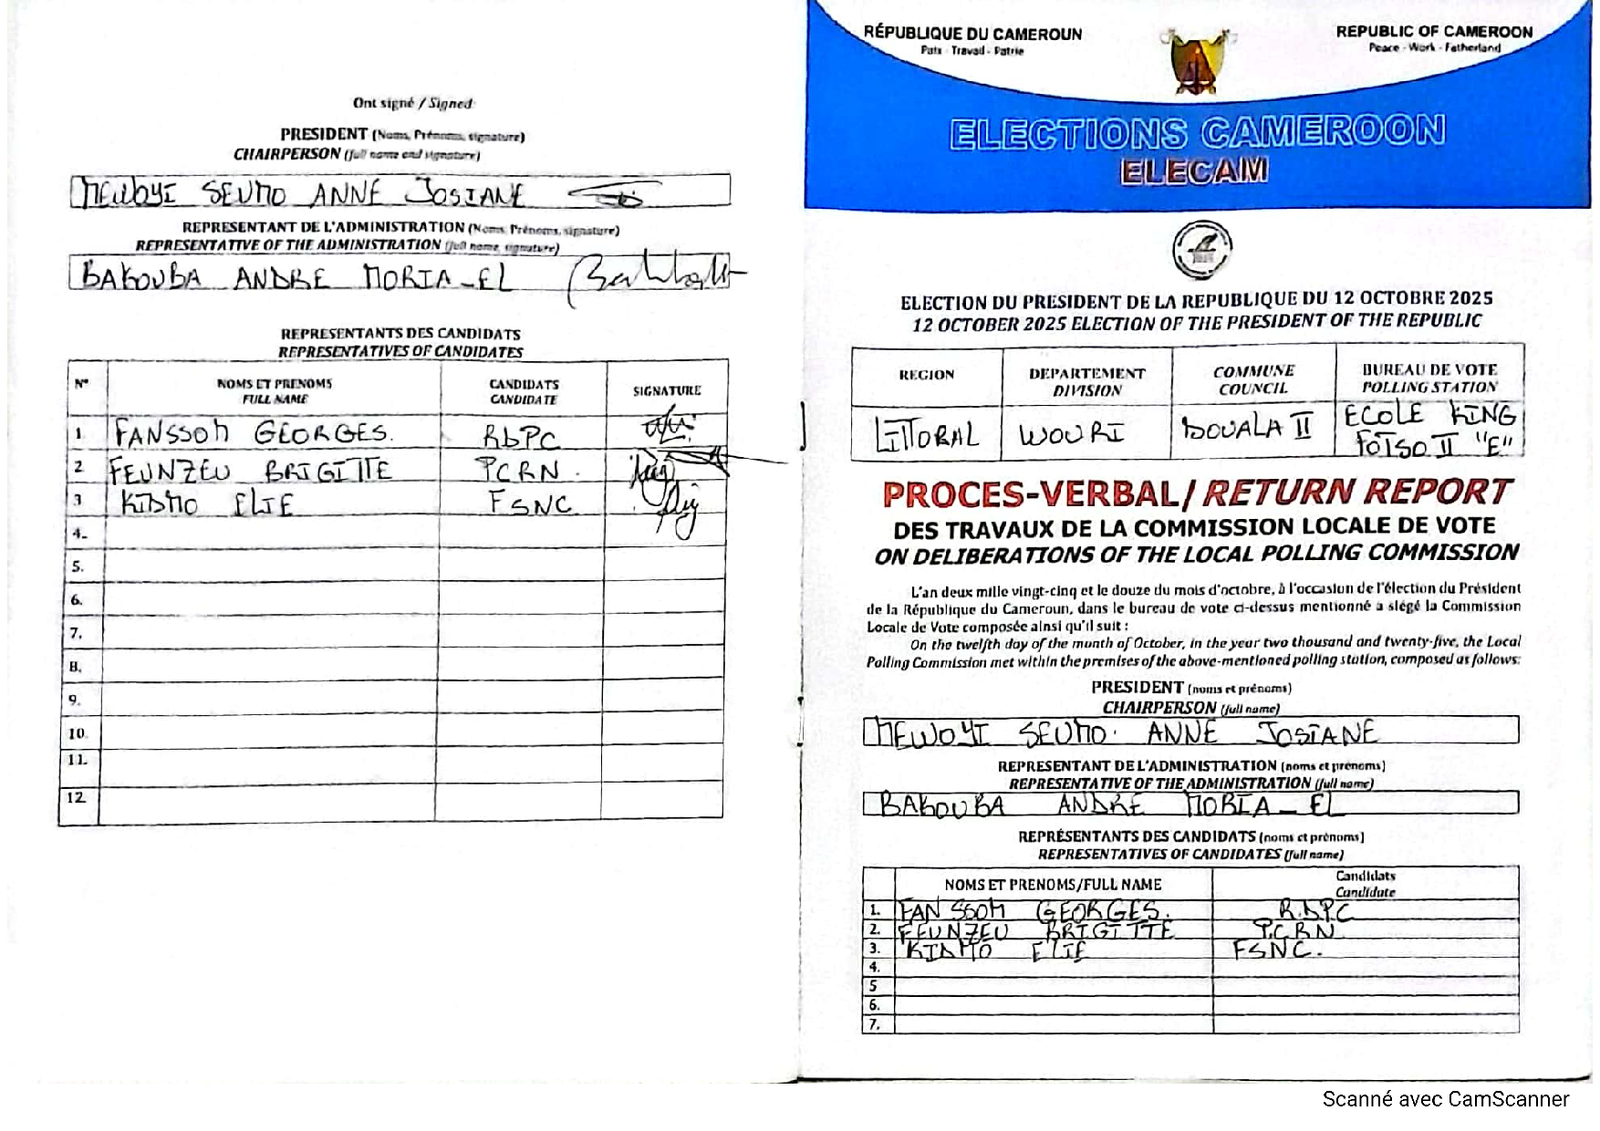 Ont signé / Signed
PRESIDENT (Noms, Prénoms, signature)
CHAIRPERSON (full name and signature)
MEWOYI SEUMO ANNE JOSIANE
REPRESENTANT DE L'ADMINISTRATION (Noms, Prénoms, signature)
REPRESENTATIVE OF THE ADMINISTRATION (full name, signature)
BAKOUBA ANDRE MORIA-EL
REPRESENTANTS DES CANDIDATS
REPRESENTATIVES OF CANDIDATES
N° NOMS ET PRENOMS CANDIDATS SIGNATURE
FULL NAME CANDIDATE
1. FANSSOM GEORGES. RDPC
2 FEUNZEU BRIGITTE PCRN.
3 KIDMO ELIE FSNC
4.
5.
6.
7.
8.
9.
10.
11.
12
RÉPUBLIQUE DU CAMEROUN
Paix - Travail - Patrie
REPUBLIC OF CAMEROON
Peace - Work - Fatherland
ELECTIONS CAMEROON
ELECAM
ELECTION DU PRESIDENT DE LA REPUBLIQUE DU 12 OCTOBRE 2025
12 OCTOBER 2025 ELECTION OF THE PRESIDENT OF THE REPUBLIC
REGION DEPARTEMENT COMMUNE BUREAU DE VOTE
DIVISION COUNCIL POLLING STATION
LITTORAL WOURI DOUALA II ECOLE KING
FOTSO II "E"
PROCES-VERBAL/ RETURN REPORT
DES TRAVAUX DE LA COMMISSION LOCALE DE VOTE
ON DELIBERATIONS OF THE LOCAL POLLING COMMISSION
L'an deux mille vingt-cinq et le douze du mois d'octobre, à l'occasion de l'élection du Président
de la République du Cameroun, dans le bureau de vote ci-dessus mentionné a siégé la Commission
Locale de Vote composée ainsi qu'il suit :
On the twelfth day of the month of October, in the year two thousand and twenty-five, the Local
Polling Commission met within the premises of the above-mentioned polling station, composed as follows:
PRESIDENT (noms et prénoms)
CHAIRPERSON (full name)
MEWOYI SEUMO. ANNE JOSIANE
REPRESENTANT DE L'ADMINISTRATION (noms et prénoms)
REPRESENTATIVE OF THE ADMINISTRATION (full name)
BAKOUBA ANDRE MORIA-EL
REPRÉSENTANTS DES CANDIDATS (noms et prénoms)
REPRESENTATIVES OF CANDIDATES (full name)
NOMS ET PRENOMS/FULL NAME Candidats
Candidate
1. FANSSOM GEORGES. R.D.P.C
2. FEUNZEU BRIGITTE P.C.R.N
3. KIDMO ELIE FSNC.
4.
5
6.
7.
Scanné avec CamScanner